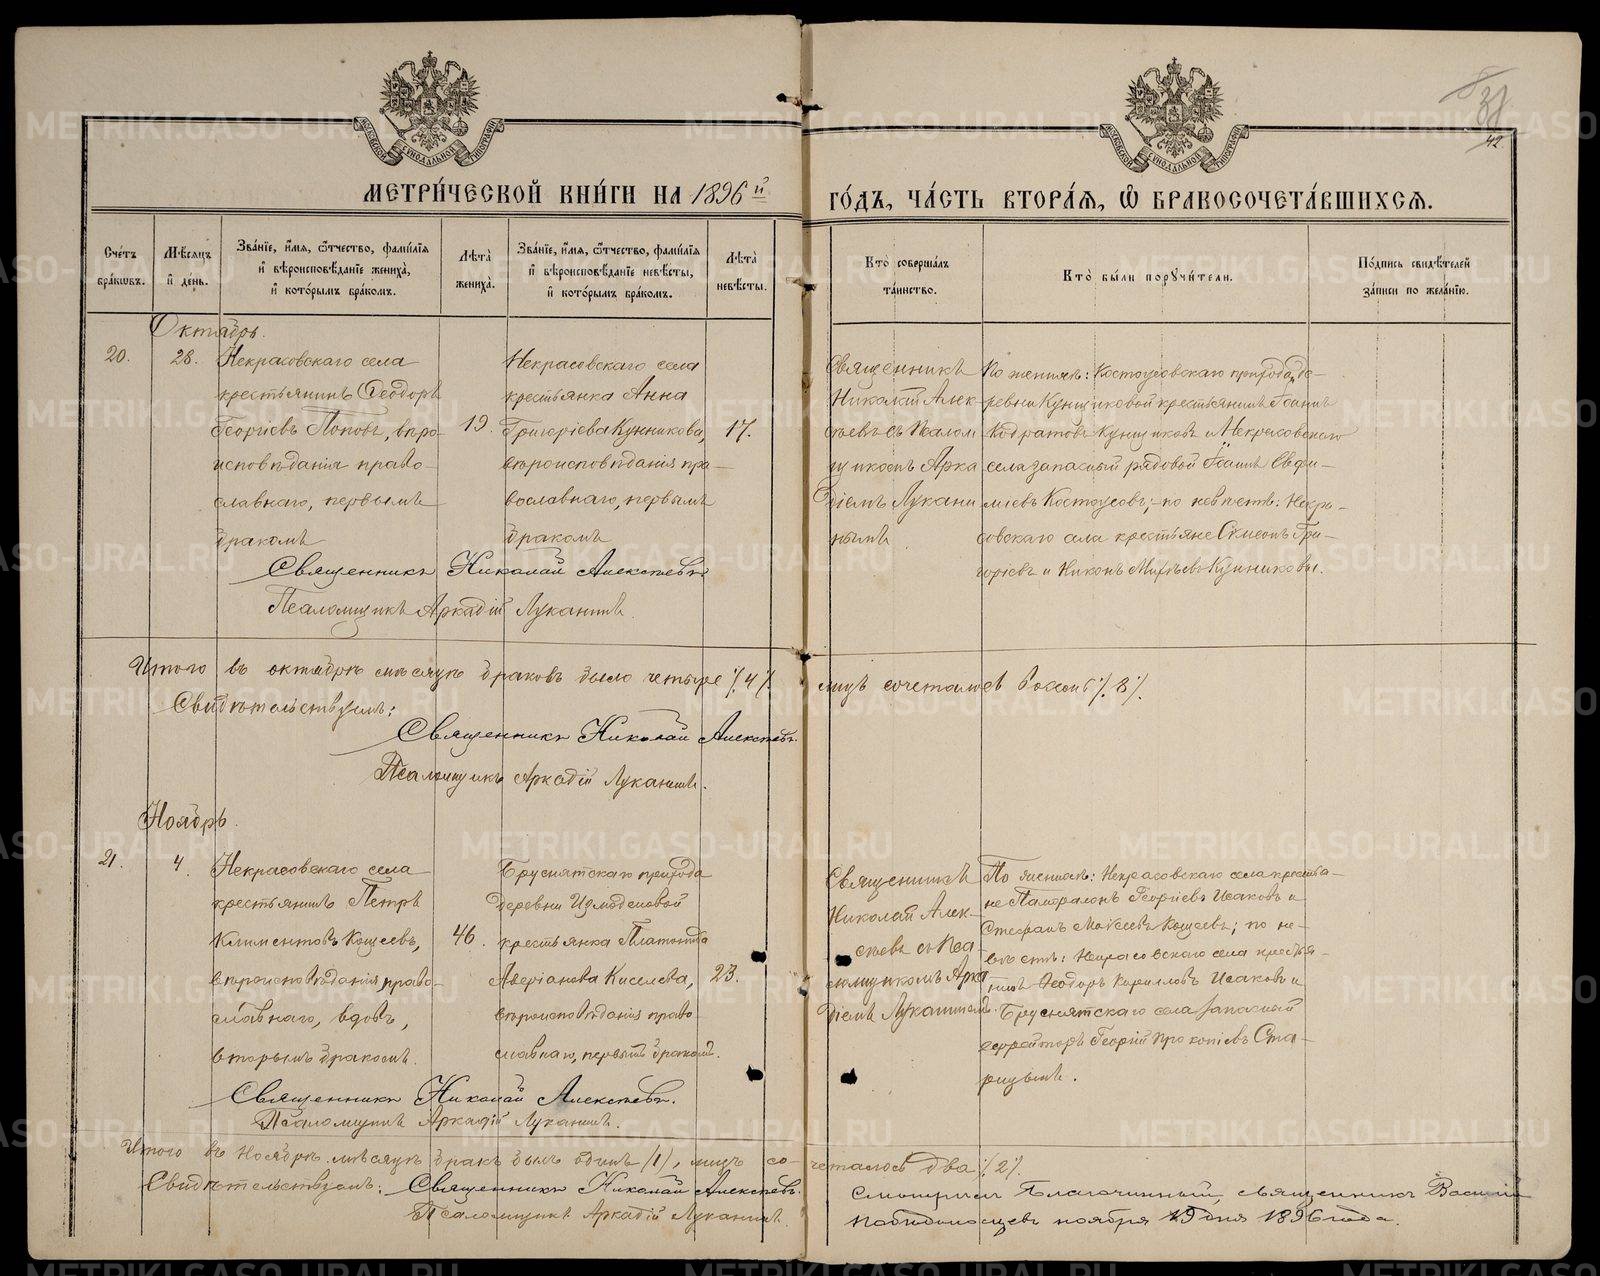 МОСКОВСКОЙ СѴНОДАЛЬНОЙ ТИПОГРАФІИ
МОСКОВСКОЙ СѴНОДАЛЬНОЙ ТИПОГРАФІИ
42
МЕТРИ́ЧЕСКОЙ КНИ́ГИ НА 1896й
ГО́ДЪ, ЧА́СТЬ ВТОРА́Я, Ѽ БРАКОСОЧЕТА́ВШИХСЯ.
Сче́тъ бра́кωвъ.
Мѣ́сяцъ и҆ де́нь.
Зва́нїе, и҆́мя, ѻ҆́тчество, фами́лїя и҆ вѣроисповѣ́данїе жениха̀, и҆ кото́рымъ бра́комъ.
Лѣ́та жениха̀.
Зва́нїе, и҆́мя, ѻ҆́тчество, фами́лїя и҆ вѣроисповѣ́данїе невѣ́сты, и҆ кото́рымъ бра́комъ.
Лѣ́та невѣ́сты.
Кто̀ соверша́лъ та́инство.
Кто̀ бы́ли порꙋчи́тели.
По́дпись свидѣ́телей за́писи по жела́нїю.
Октябрь.
20.
28.
Некрасовскаго села
крестьянинъ Ѳеодоръ
Георгіевъ Поповъ, вѣро-
исповѣданія право-
славнаго, первымъ
бракомъ
19.
Некрасовскаго села
крестьянка Анна
Григоріева Кунникова,
вѣроисповѣданія пра-
вославнаго, первымъ
бракомъ
17.
Священникъ
Николай Алек-
сѣевъ съ Псалом
щикомъ Арка
діемъ Лукани
нымъ
По женихѣ: Костоусовскаго прихода, де-
ревни Кунщиковой крестьянинъ Іоаннъ
Кодратовъ Кунщиковъ и Некрасовскаго
села запасный рядовой Іоаннъ Евѳи-
міевъ Костоусовъ; по невѣстѣ: Некра-
совскаго села крестьяне Симеонъ Гри-
горіевъ и Никонъ Матвѣевъ Кунниковы.
Священникъ Николай Алексѣевъ
Псаломщикъ Аркадій Луканинъ.
Итого въ октябрѣ мѣсяцѣ браковъ было четыре /4/. лицъ сочеталось восемь /8/.
Свидѣтельствуемъ:
Священникъ Николай Алексѣевъ.
Псаломщикъ Аркадій Луканинъ.
Ноябрь.
21.
4.
Некрасовскаго села
крестьянинъ Петръ
Климентовъ Кощеевъ,
вѣроисповѣданія право-
славнаго, вдовъ,
вторымъ бракомъ.
46.
Бруснятскаго прихода
деревни Измоденовой
крестьянка Платонида
Аверіанова Киселева,
вѣроисповѣданія право-
славнаго, первымъ бракомъ.
23.
Священникъ
Николай Алек-
сѣевъ съ Пса-
ломщикомъ Арка
діемъ Луканинымъ.
По женихѣ: Некрасовскаго села крестья-
не Патралонъ Георгіевъ Исаковъ и
Стефанъ Моѵсеевъ Кощеевъ; по не-
вѣстѣ: Некрасовскаго села крестья-
нинъ Ѳеодоръ Кирилловъ Исаковъ и
Бруснятскаго села запасный
ефрейторъ Георгій Прокопіевъ Ста-
рицынъ.
Священникъ Николай Алексѣевъ.
Псаломщикъ Аркадій Луканинъ.
Итого въ Ноябрѣ мѣсяцѣ бракъ былъ одинъ /1/, лицъ со-четалось два /2/.
Свидѣтельствуемъ: Священникъ Николай Алексѣевъ.
Псаломщикъ Аркадій Луканинъ.
Смотрѣлъ Благочинный, священникъ Василій
Побѣдоносцевъ ноября 19 дня 1896 года.
METRIKI.GASO-URAL.RU